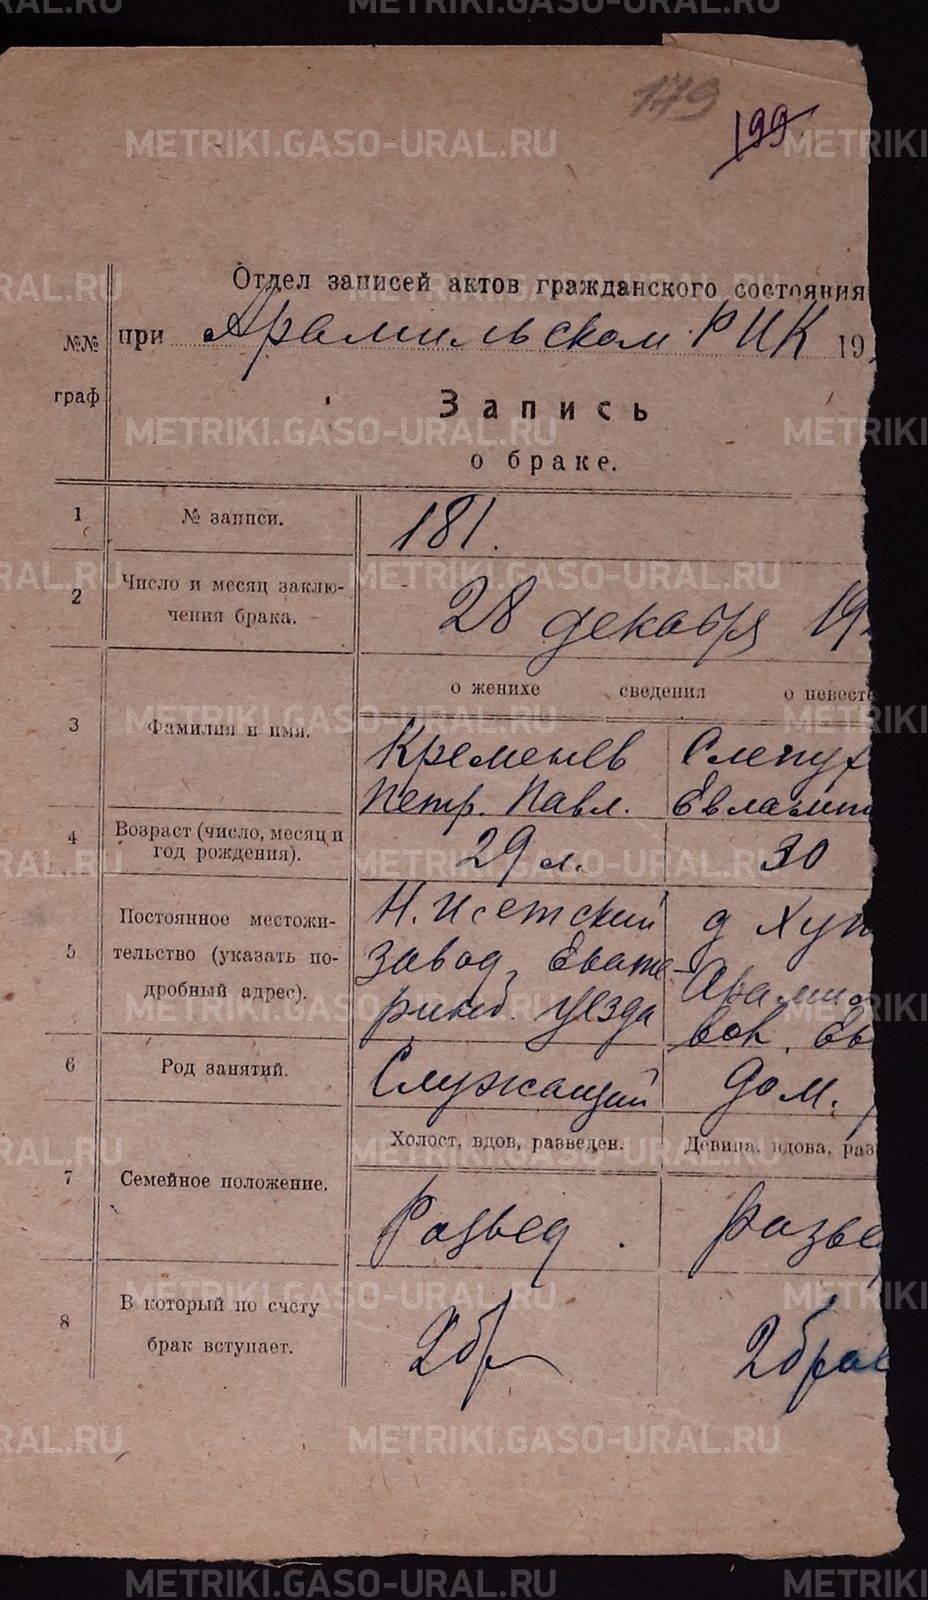 METRIKI.GASO-URAL.RU
179
199
Отдел записей актов гражданского состояния
при Арамильском РИК 19
№№ граф
Запись
о браке.
1 № записи. 181.
2 Число и месяц заключения брака. 28 декабря 19
о женихе сведения о невесте
3 Фамилия и имя.
Кременев Слепух
Петр. Павл. Евлами
4 Возраст (число, месяц и
год рождения). 29 л. 30
5 Постоянное местожи-
тельство (указать по-
дробный адрес).
Н. Исетский д Хут
завод, Екате- Арамил
ринб. уезда вол. Ек
6 Род занятий. Служащий дом.
Холост, вдов, разведен. Девица, вдова, раз
7 Семейное положение. Развед. разве
8 В который по счету
брак вступает. 2 бр 2 брак